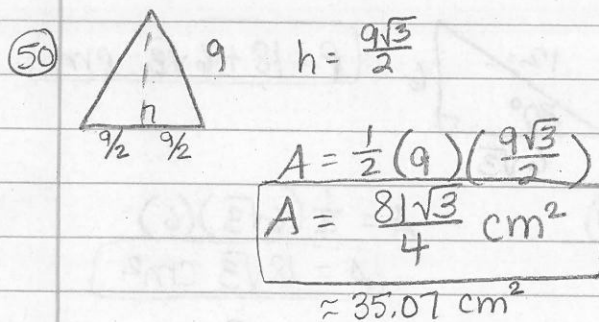 50
9 h = 9√3/2
h
9/2 9/2
A = 1/2 (9)(9√3/2)
A = 81√3/4 cm²
≈ 35.07 cm²